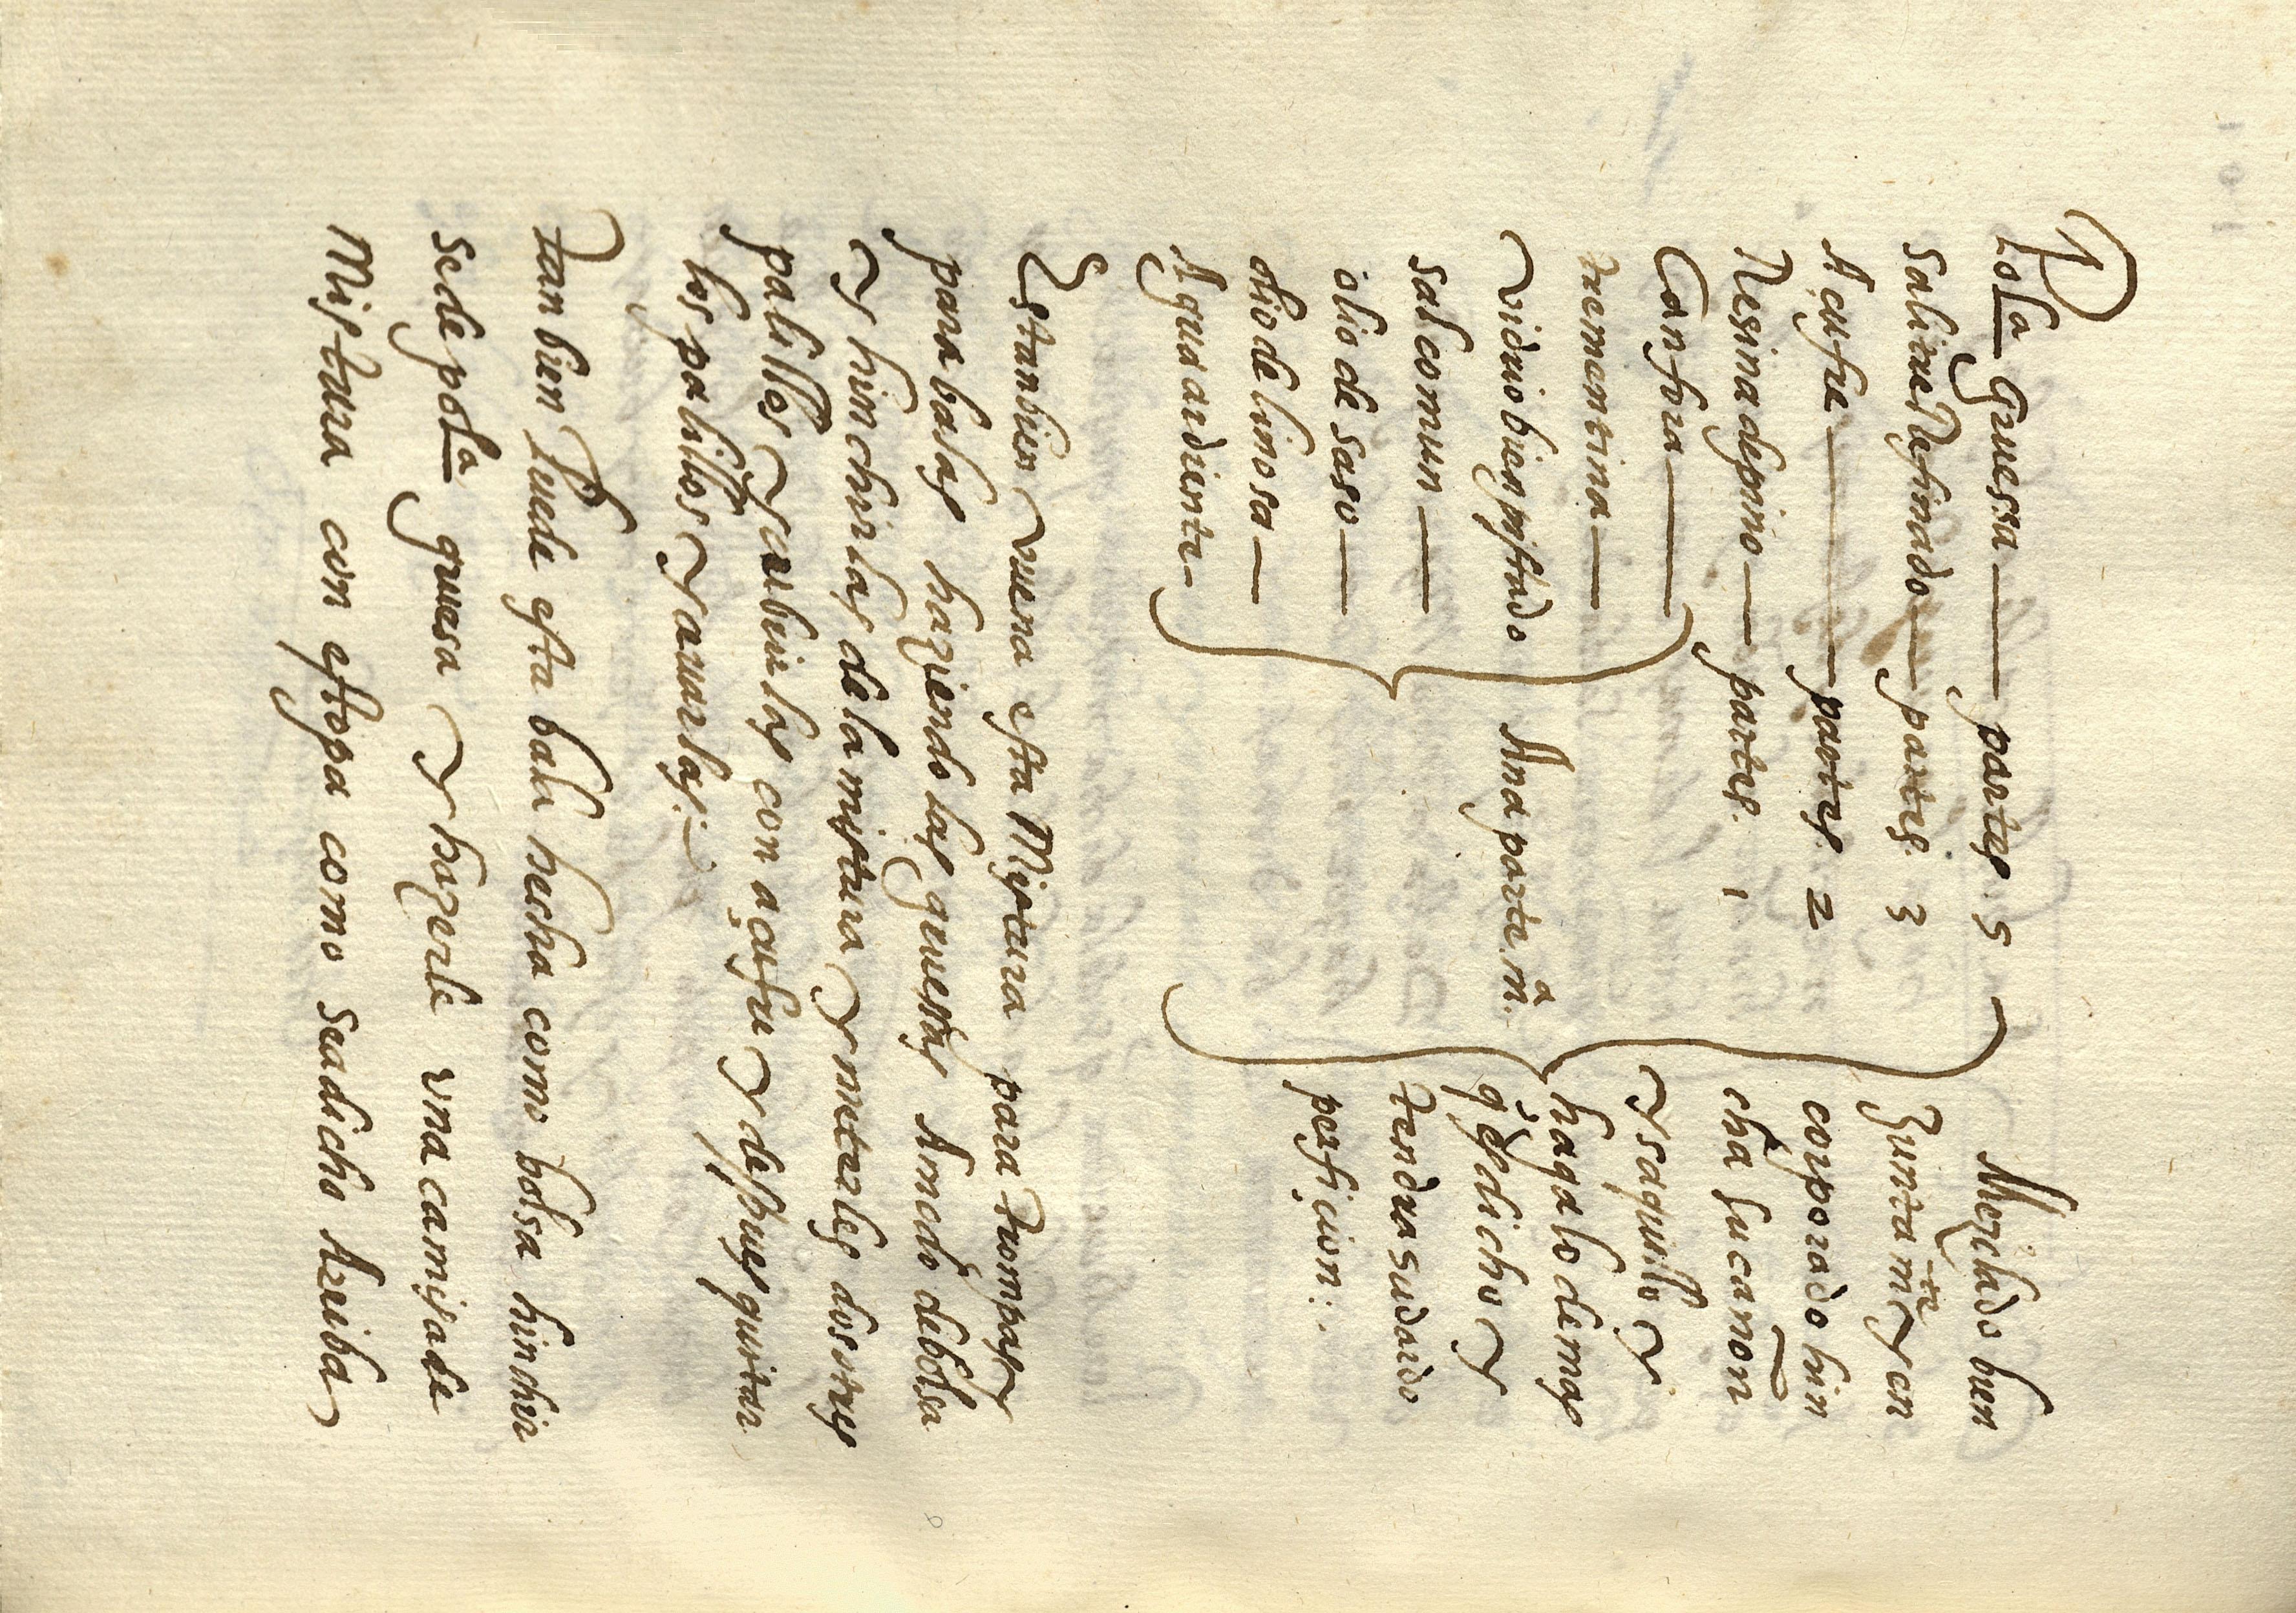 R
Pol.a gruessa — partes. 5
salitre Refinado — partes. 3
Açufre — partes. 2
Resina de pino — partes. 1
Canfora —
trementina —
vidrio bien pistado
sal comun —
olio de saso —
olio de linosa —
Agua ardiente —
Ana parte. m.a
Mezclado bien
Juntam.te y en
corporado hin
cha su cañon
y saquillo y
hagalo demas
q̃ es dicho y
tendra su dardo
perficion.
Es tanbien buena esta Mistura para trompas y
para balas haziendolas gruesas Amodo de bolsa
y hinchirlas de la mistura y meterles dos o tres
palillos y cubrirlas con açufre y despues quitar
los palillos y cauarlas.
tanbien Puede esta bala hecha como bolsa hinchir
se de pol.a gruesa y hazerle vna camisa de
Mistura con estopa como sea dicho Arriba